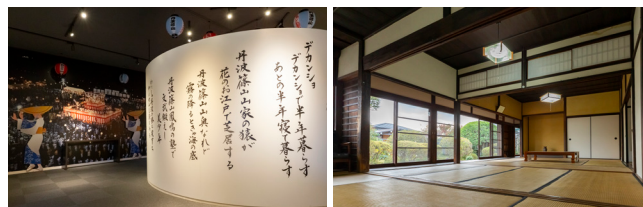 デカンショ
デカンショで半年暮らす
あとの半年寝て暮らす
丹波篠山山家の猿が
花のお江戸で芝居する
丹波篠山山奥なれど
霧の降るときゃ海の底
丹波篠山鳳鳴の塾で